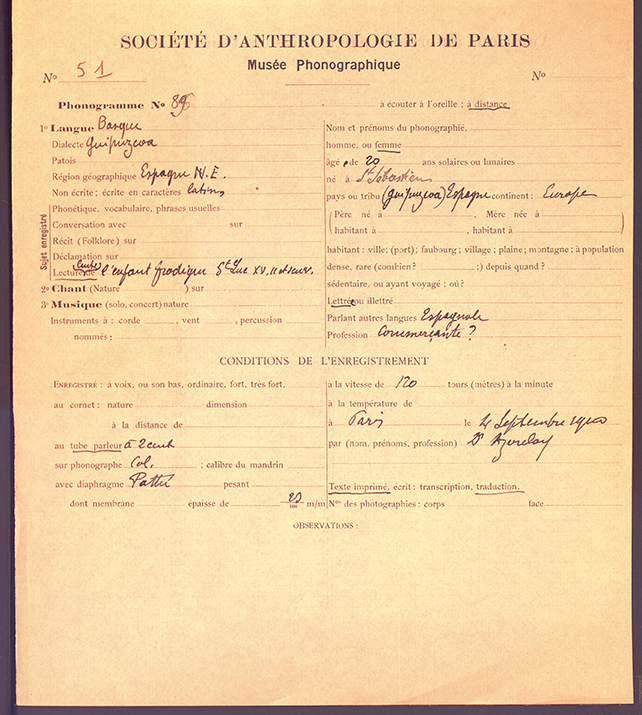 SOCIÉTÉ D'ANTHROPOLOGIE DE PARIS
Musée Phonographique
No 51
No
Phonogramme No
à écouter à l'oreille ; à distance
1o Langue Basque
Dialecte Guipuzcoa
Patois
Région géographique Espagne N.E.
Non écrite ; écrite en caractères latins
Phonétique, vocabulaire, phrases usuelles
Conversation avec sur
Récit (Folklore) sur
Déclamation sur
Lecture de l'enfant prodigue St Luc XV. 11 et suiv.
Sujet enregistré
2o Chant (Nature ) sur
3o Musique (solo, concert) nature
Instruments à : corde , vent , percussion
nommés :
Nom et prénoms du phonographié,
homme, ou femme
âgé de 20 ans solaires ou lunaires
né à St Sébastien
pays ou tribu (Guipuzcoa) Espagne continent : Europe
(Père né à . Mère née à )
(habitant à , habitant à )
habitant : ville ; (port) ; faubourg ; village ; plaine ; montagne ; à population
dense, rare (combien ? ;) depuis quand ?
sédentaire, ou ayant voyagé ; où ?
Lettré ou illettré
Parlant autres langues Espagnole
Profession Commerçante ?
CONDITIONS DE L'ENREGISTREMENT
ENREGISTRÉ : à voix, ou son bas, ordinaire, fort, très fort,
au cornet : nature dimension
à la distance de
au tube parleur à 2 cent
sur phonographe Col. ; calibre du mandrin
avec diaphragme pesant
dont membrane épaisse de 20/100 m/m
à la vitesse de 120 tours (mètres) à la minute
à la température de
à Paris le Septembre 1900
par (nom, prénoms, profession) Dr Azoulay
Texte imprimé, écrit : transcription, traduction.
Nos des photographies : corps face
OBSERVATIONS :